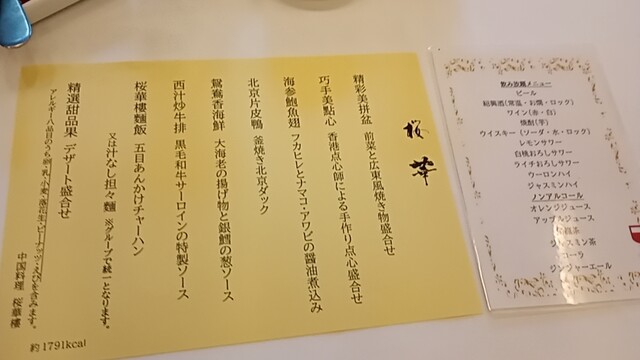 桜華
精彩美拼盆 前菜と広東風焼き物盛合せ
巧手美點心 香港点心師による手作り点心盛合せ
海参鮑魚翅 フカヒレとナマコ・アワビの醤油煮込み
北京片皮鴨 釜焼き北京ダック
鴛鴦香海鮮 大海老の揚げ物と銀鱈の葱ソース
西汁炒牛排 黒毛和牛サーロインの特製ソース
桜華樓麺飯 五目あんかけチャーハン
又は汁なし担々麺 ※グループで統一となります。
精選甜品果 デザート盛合せ
アレルギー八品目のうち卵・乳・小麦・落花生・ピーナッツ・えびを含みます。
中国料理 桜華樓
約1791kcal
飲み放題メニュー
ビール
紹興酒(常温・お燗・ロック)
ワイン(赤・白)
焼酎(芋)
ウイスキー(ソーダ・水・ロック)
レモンサワー
白桃おろしサワー
ライチおろしサワー
ウーロンハイ
ジャスミンハイ
ノンアルコール
オレンジジュース
アップルジュース
茶
ジャスミン茶
コーラ
ジンジャーエール